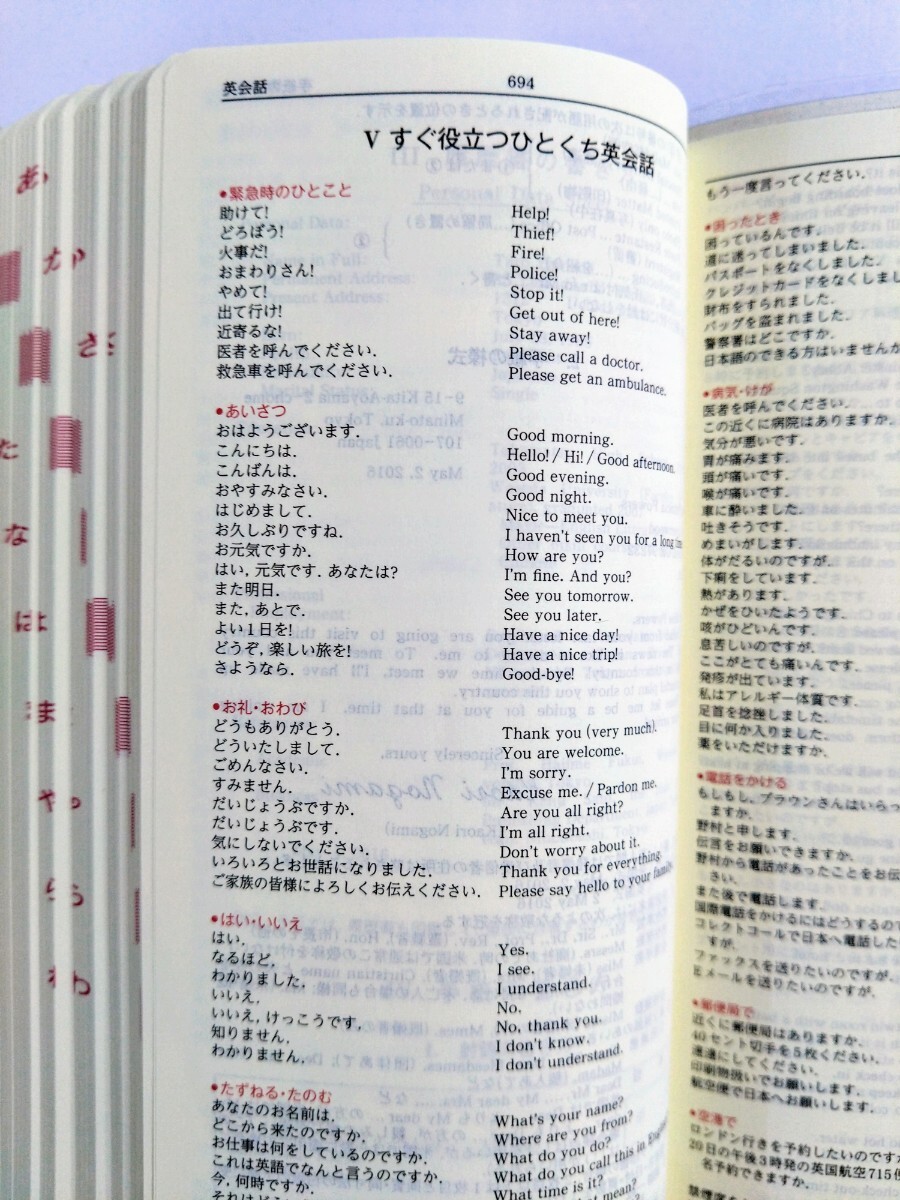 英会話
694
V すぐ役立つひとくち英会話
•緊急時のひとこと
助けて! Help!
どろぼう! Thief!
火事だ! Fire!
おまわりさん! Police!
やめて! Stop it!
出て行け! Get out of here!
近寄るな! Stay away!
医者を呼んでください. Please call a doctor.
救急車を呼んでください. Please get an ambulance.
•あいさつ
おはようございます. Good morning.
こんにちは. Hello! / Hi! / Good afternoon.
こんばんは. Good evening.
おやすみなさい. Good night.
はじめまして. Nice to meet you.
お久しぶりですね. I haven't seen you for a long
お元気ですか. How are you?
はい, 元気です. あなたは? I'm fine. And you?
また明日. See you tomorrow.
また, あとで. See you later.
よい1日を! Have a nice day!
どうぞ, 楽しい旅を! Have a nice trip!
さようなら. Good-bye!
•お礼・おわび
どうもありがとう. Thank you (very much).
どういたしまして. You are welcome.
ごめんなさい. I'm sorry.
すみません. Excuse me. / Pardon me.
だいじょうぶですか. Are you all right?
だいじょうぶです. I'm all right.
気にしないでください. Don't worry about it.
いろいろとお世話になりました. Thank you for everything.
ご家族の皆様によろしくお伝えください. Please say hello to your family.
•はい・いいえ
はい. Yes.
なるほど. I see.
わかりました. I understand.
いいえ. No.
いいえ, けっこうです. No, thank you.
知りません. I don't know.
わかりません. I don't understand.
•たずねる・たのむ
あなたのお名前は. What's your name?
どこから来たのですか. Where are you from?
お仕事は何をしているのですか. What do you do?
これは英語でなんと言うのですか. What do you call this in
今, 何時ですか. What time is it?
それはどう mean?
もう一度言ってください.
•困ったとき
困っているんです.
道に迷ってしまいました.
パスポートをなくしました.
クレジットカードをなくしまし
財布をすられました.
バッグを盗まれました.
警察署はどこですか.
日本語のできる方はいませんか
•病気・けが
医者を呼んでください.
この近くに病院はありますか.
気分が悪いです.
胃が痛みます.
頭が痛いです.
喉が痛いです.
車に酔いました.
吐きそうです.
めまいがします.
体がだるいのですが.
下痢をしています.
熱があります.
かぜをひいたようです.
咳がひどいんです.
息苦しいのですが.
ここがとても痛いんです.
発疹が出ています.
私はアレルギー体質です.
足首を捻挫しました.
目に何か入りました.
薬をいただけますか.
•電話をかける
もしもし, ブラウンさんはいらっ
ますか.
野村と申します.
伝言をお願いできますか.
野村から電話があったことをお伝
さい.
また後で電話します.
国際電話をかけるにはどうするの
コレクトコールで日本へ電話した
すが.
ファックスを送りたいのですが.
Eメールを送りたいのですが.
•郵便局で
近くに郵便局はありますか.
40セント切手を5枚ください.
速達にしてください.
印刷物扱いでお願いします.
航空便で日本へお願いします.
•空港で
ロンドン行きを予約したいのですが
20日の午後3時発の英国航空715便
名予約できますか.
あ
か
さ
た
な
は
ま
や
ら
わ